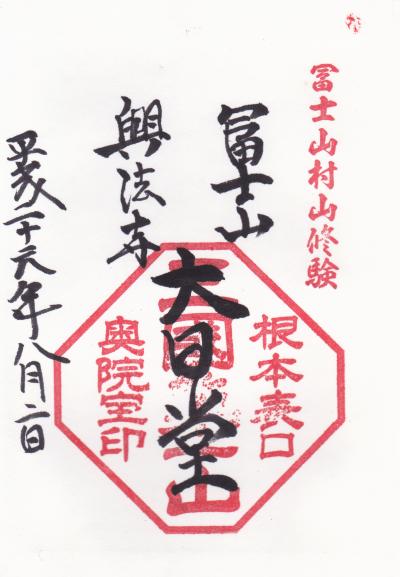 冨士山村山修験
冨士山
根本表口
大日堂
興法寺
奥院宝印
平成二十九年八月二日